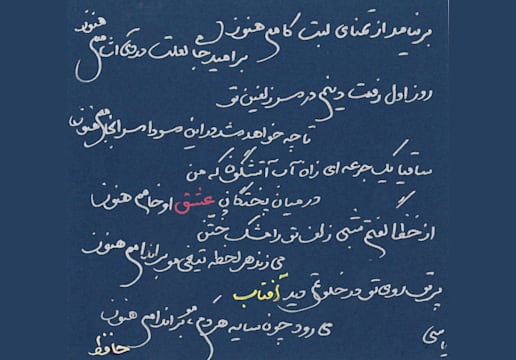 برنیامد از تمنای لبت کامم هنوز
بر امید جام لعلت دردی آشامم هنوز
روز اول رفت دینم در سر زلفین تو
تا چه خواهد شد در این سودا سرانجامم هنوز
ساقیا یک جرعه‌ای زان آب آتشگون که من
در میان پختگان عشق او خامم هنوز
از خطا گفتم شبی زلف تو را مشک ختن
می‌زند هر لحظه تیغی مو بر اندامم هنوز
پرتو روی تو در خلوتم دید آفتاب
می‌رود چون سایه هر دم بر اندامم هنوز
حافظ